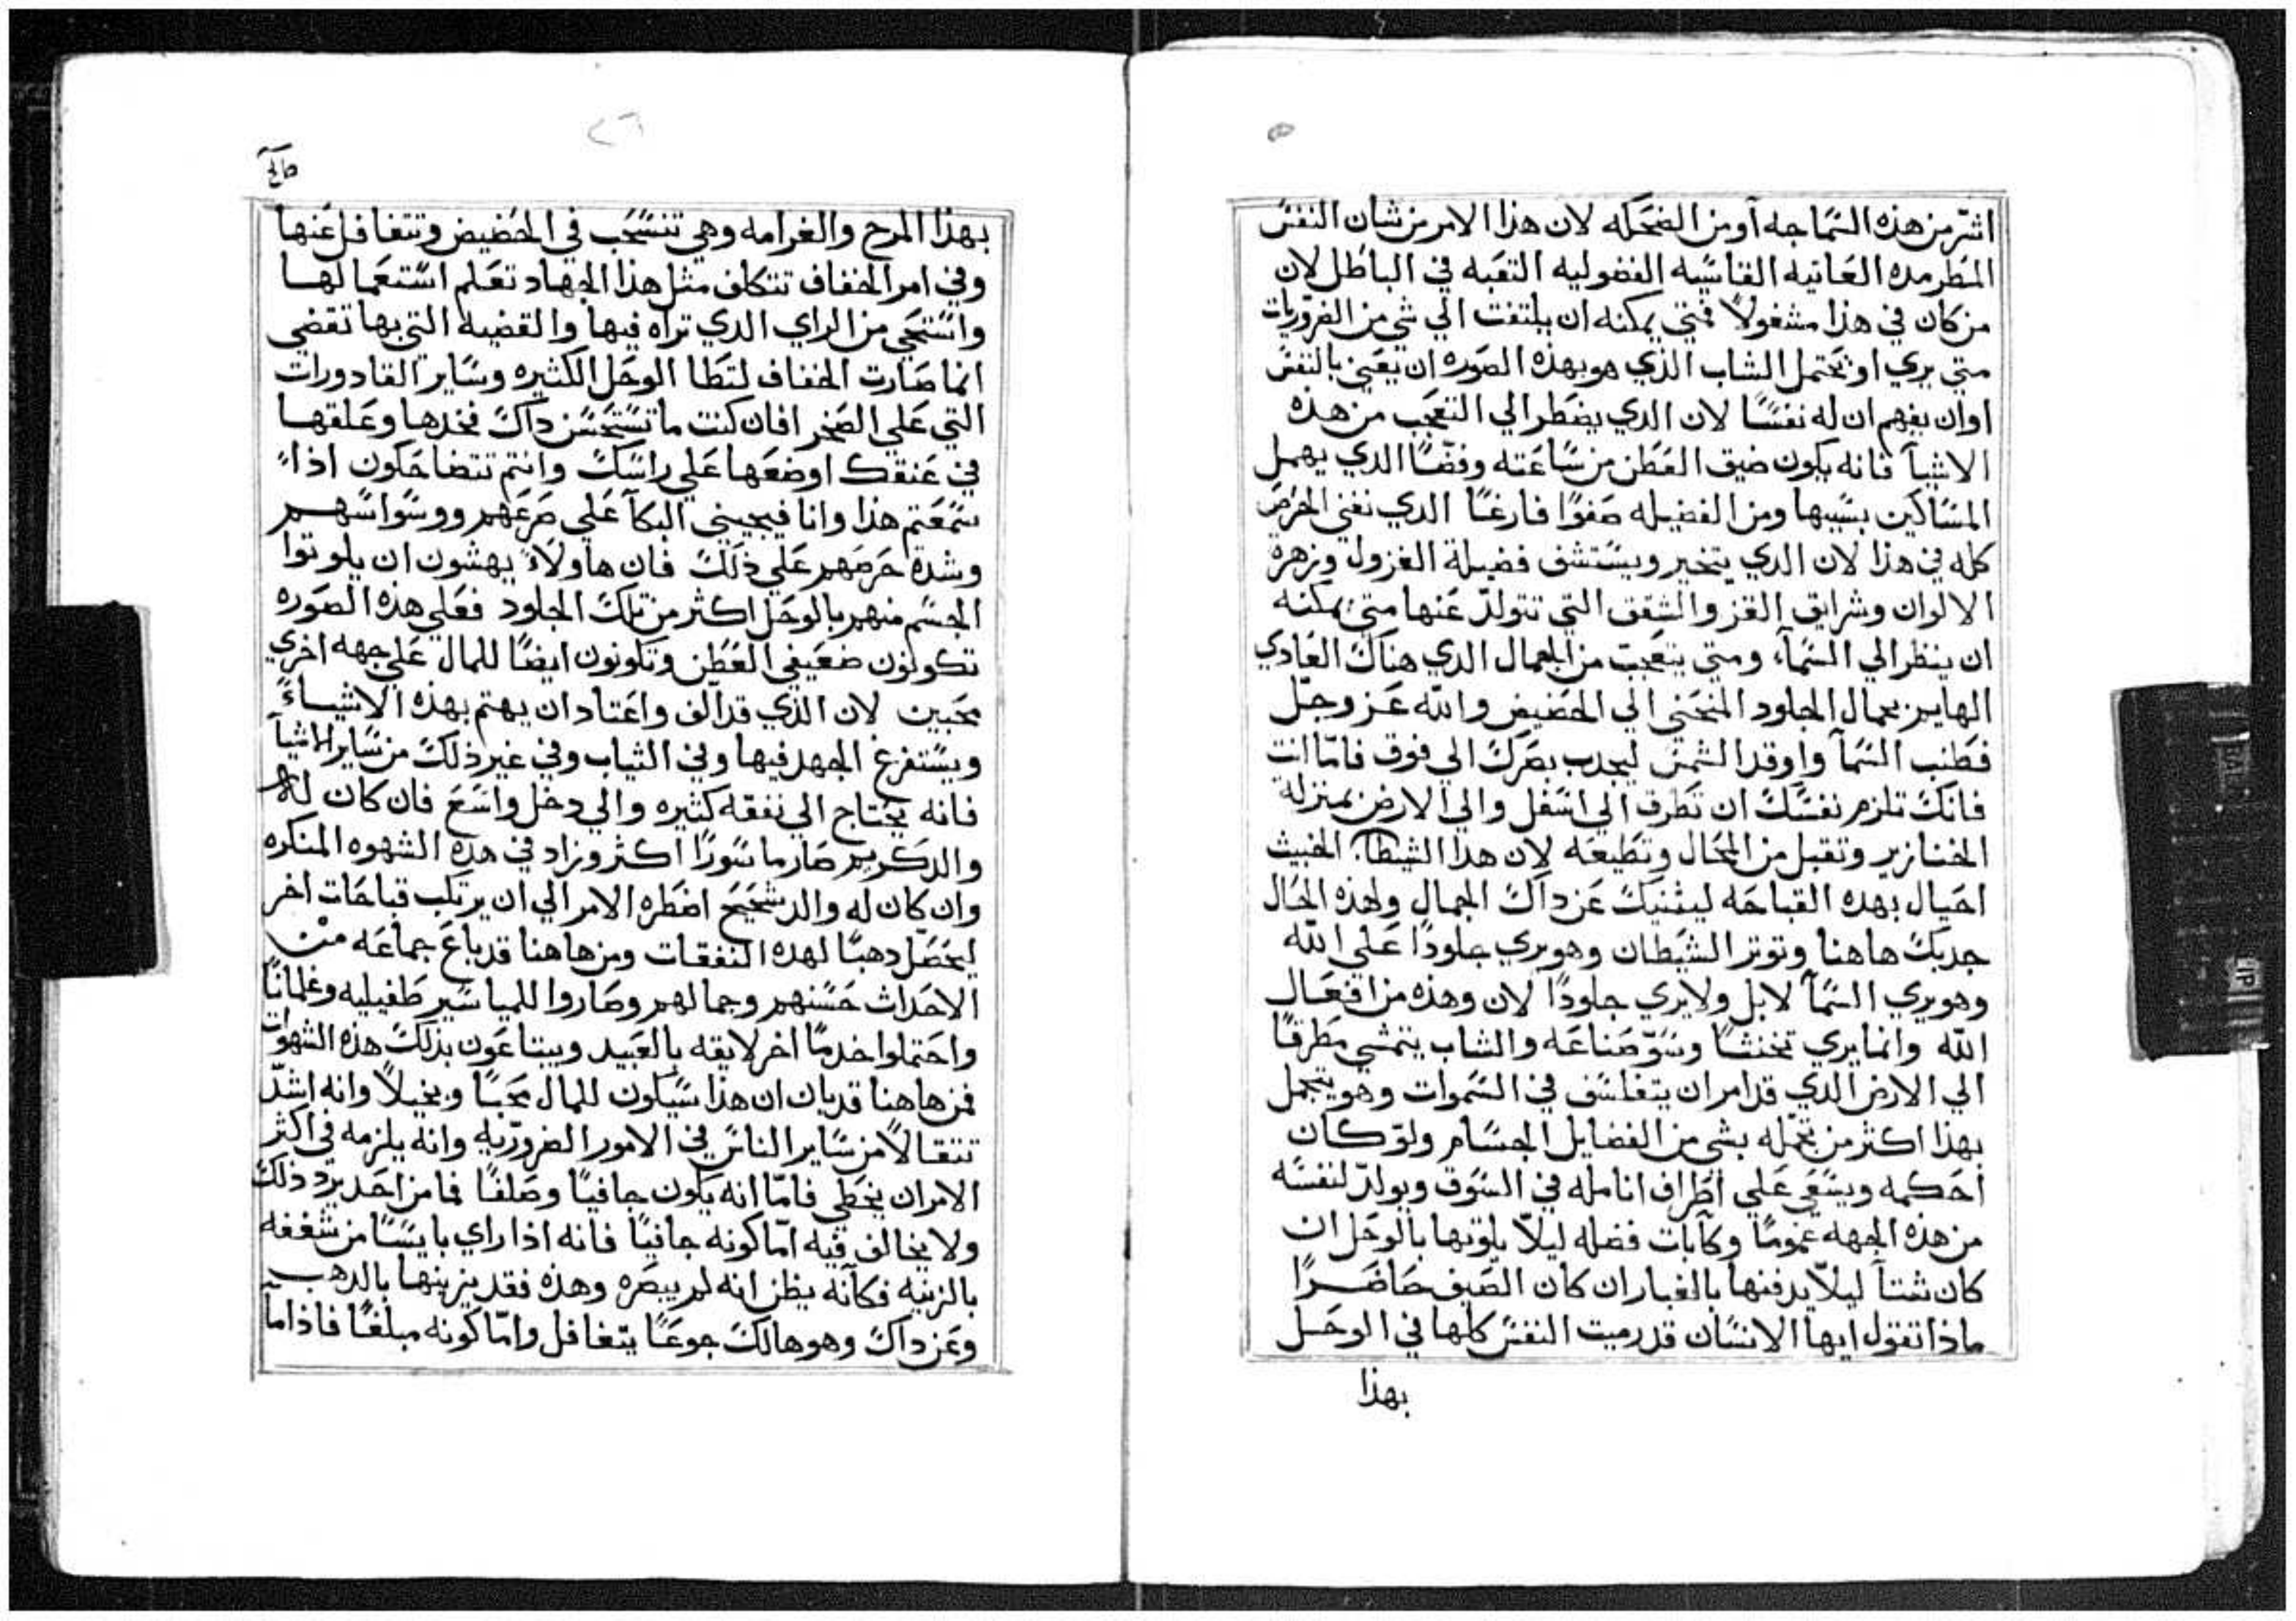 اشرّ من هذه السّماجه أو من الضحكه لان هذا الامر من شان النفسْ
المطرمده العاتيه القاسّيه الفضوليه التعَبه في الباطل لان
من كان في هذا مشغولاً فمتي يمكنه ان يلتفت الي شي من الضروّريات
متي يري او يحتمل الشاب الذي هو بهذه الصَوره ان يَعني بالنفسْ
او ان يفهم ان له نفسًّا لان الدي يضطر الي التعجَب من هذه
الاشيآ فانه يكون ضيق العَطن من سّاعَته وفضًّا الدي يهمل
المسّاكين بسّببها ومن الفضيله صَفوًا فارغًا الدي نفني الحَرصَ
كله في هذا لان الدي يتخير ويسّتشف فضيلة الغزول وزهرة
الالوان وشرايق القز والشقق التي تتولدّ عَنها متي يمكنه
ان ينظر الي السّمآء ومتي يتعَجبَ من الجمال الدي هناكَ الغادي
الهايم بجمال الجلود المنحَني الي الحَضيض والله عَز وجَلّ
فطنب السّمآ واوقد الشمسْ ليجدب بصَركَ الي فوق فامّا انت
فانكَ تلزم نفسَّكَ ان تَطرق الي اسّفل والي الارض بمنزلة
الخنازير وتقبل من المحَال وتطيعَه لان هدا الشيطا. الخبيث
احَيال بهده القباحَه ليثنيكَ عَن داكَ الجمال ولهذه الحَال
جدبكَ هاهنا وتوتر الشيَطان وهو يري جلودًا عَلي الله
وهو يري السّمآ لا بل ولا يري جلودًا لان وهذه من افعَال
الله وانما يري تخنثًا وسّوّ صَناعَه والشاب يتمشي مَطرقًا
الي الارض الدي قد امر ان يتفلسّف في السّموات وهو يتجمل
بهذا اكثر من تجمّله بشي من الفضايل الجسّام ولوّ كان
احَكمه ويسّعَي عَلي اطَراف انامله في السّوق ويولدّ لنفسّه
من هذه الجهه غمومًا وكآبات فضله ليلاّ يلوتها بالوحَل ان
كان شتآ ليلاّ يدفنها بالغبار ان كان الصَيف حَاضَرًا
ماذا تقول ايها الانسّان قد رميت النفسْ كلها في الوحَل
بهذا
٢٦
بهذا المرح والغرامه وهي تنسّحَب في الحَضيض وتتغافل عَنها
وفي امر الخفاف تتكلف مثل هذا الجهاد تعَلم اسّتعَمالها
واسّتحَي من الراي الدي تراه فيها والقضيه التي بها تقضي
انما صَارت الخفاف لتَطا الوحَل الكثيره وسّاير القادورات
التي عَلي الصَخر افان كنت ما تسّتحَسّن داكَ فخدها وعَلقها
في عَنقك او ضعَها عَلي راسّكَ وانتم تتضاحَكون اذا
سّمعَتم هذا وانا فيجيني البكآ عَلي صَرعَهم ووسّواسّهم
وشدة حَرصَهم عَلي ذلكَ فان هاولاَءِ يهشون ان يلوتوا
الجسّم منهم بالوحَل اكثر من تلكَ الجلود فعَلي هذه الصَوره
تكونون ضعَيفي العَطن وتكونون ايضًا للمال عَلي جهه اخري
محَبين لان الذي قد ألف واعَتاد ان يهتم بهذه الاشياءً
ويسّتفرغ الجهد فيها وفي الثياب وفي غير ذلكَ من سّاير الاشيآ
فانه يحَتاج الي نفقه كثيره والي دخل واسّعَ فان كان له
والد كريم صَار ماسّورًا اكثر وزاد في هذه الشهوه المنكره
وان كان له والد شحَيحَ اضطره الامر الي ان يرتكب قباحَات اخر
ليحَصَل دهبًا لهده النفقات ومن هاهنا قد باعَ جماعَه من
الاحَداث حَسّنهم وجمالهم وصَاروا للمياسّير طَفيليه وغلمانًا
واحَتملوا خدمًا اخر لايقه بالعَبيد ويبتاعَون بذلكَ هذه الشهوات
فمن هاهنا قد بان ان هذا سّيكون للمال محَبًا وبخيلاً وانه اشدّ
تتقالاً من سّاير الناسّ في الامور الضروّريه وانه يلزمه في اكثر
الامر ان يخطي فامّا انه يكون جافيًا وصَلفًا فما من احَد يرد ذلكَ
ولا يخالف فيه امّا كونه جافيًا فانه اذا راي بايسًّا من شغفه
بالزينه فكآنه يظن انه لم يبصَره وهذه فقد يزينها بالدهب
وعَن داكَ وهو هالكَ جوعًا يتغافل وامّا كونه مبلغًا فاذا ما